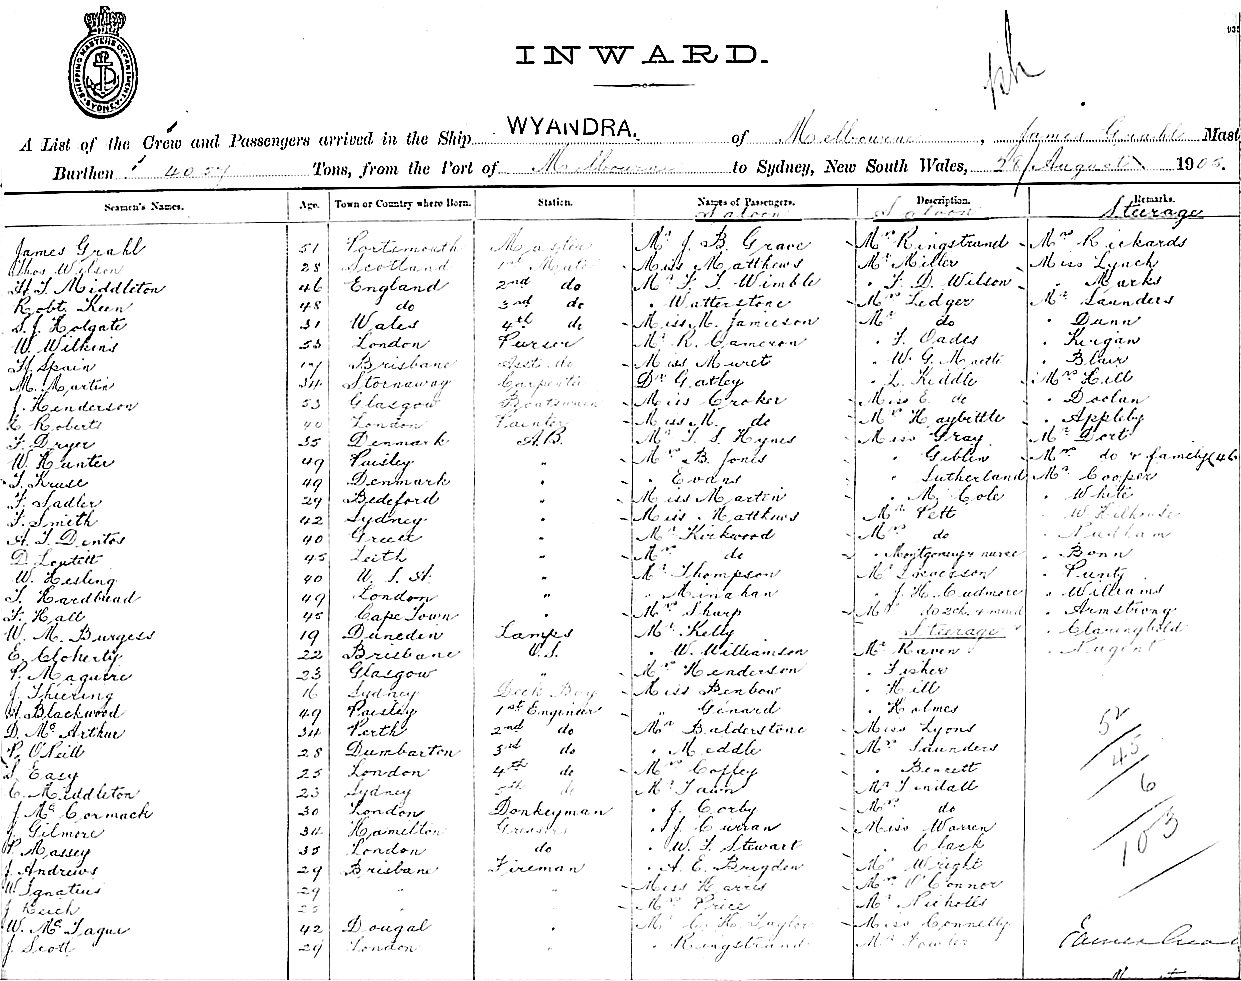 INWARD.
A List of the Crew and Passengers arrived in the Ship WYANDRA. of Melbourne, James Grahl Mast
Burthen 4057 Tons, from the Port of Melbourne to Sydney, New South Wales, 28/August 190
Seamen's Names. Age. Town or Country where Born. Station. Names of Passengers. Description. Remarks.
Saloon Saloon Steerage
James Grahl 51 Portsmouth Master Mr J. B. Grave Mrs Ringstrand Mrs Rickards
Thos Wilson 28 Scotland 1st Mate Miss Matthews Mr Miller Miss Lynch
H. J. Middleton 46 England 2nd do Mr F. T. Wimble " F. D. Wilson " Marks
Robt. Keen 48 do 3rd do " Watterstone Mrs Ledger Mr Saunders
S. J. Holgate 31 Wales 4th do Miss M. Jamieson Mr do " Dunn
W. Wilkins 53 London Purser Mr R. Cameron " F. Oades " Kirgan
H. Spain 17 Brisbane Asst do Miss Muret " W. G. " Blair
M. Martin 34 Stornaway Carpenter Dr Gatley " L. Kiddle Mrs Hill
J. Henderson 53 Glasgow Boatswain Miss Croker Miss E. do " Doolan
E. Roberts 40 London Painter Miss M. do Mrs Haybittle " Appleby
F. Dryer 35 Denmark A.B. Mr T. S. Hynes Miss Gray Mr Dort
W. Hunter 49 Paisley " Mrs B. Jones " Giblin Mrs do & family (46
T. Kruse 49 Denmark " " Evans " Sutherland Mr Cooper
F. Sadler 29 Bedeford " Miss Martin " M. Cole " White
F. Smith 42 Sydney " Miss Matthews Mr Pett " W. Hilhouse
A. T. Dentos 40 Greece " Mr Kirkwood Mrs do " Nudham
D. Loutitt 45 Leith " Mrs do " Montgomery & nurse " Bonn
W. Hesling 40 U. S. A. " Mr Thompson Mr " Punty
T. Hardbead 49 London " " Minahan " J. H. Cudmore " Williams
F. Hall 45 Cape Town " Mrs Sharp Mrs do 2ch & maid " Armstrong
W. M. Burgess 19 Duneden Lamps Mr Kelly Steerage " Claringbold
E. Cloherty 22 Brisbane O.S. " W. Williamson Mr Raven " Nugent
P. Maguire 23 Glasgow " Mrs Henderson " Fisher
J. Thiering 16 Sydney Deck Boy Miss Benbow " Hill
A. Blackwood 49 Paisley 1st Engineer " Genard " Holmes
D. McArthur 34 Perth 2nd do Mr Balderstone Miss Lyons
P. O'Neill 28 Dumbarton 3rd do " Meddle Mrs Saunders
T. Easy 25 London 4th do Mrs Coffey " Bennett
C. Middleton 23 Sydney 5th do Mr Taun Mr Tindall
J. McCormack 30 London Donkeyman " J. Corby Mrs do
J. Gilmore 34 Hamilton Greaser " J. Curran Miss Warren
P. Massey 35 London do " W. F. Stewart " Clark
J. Andrews 29 Brisbane Fireman " A. E. Brigden Mr Wright
W. Ignatius 29 " " Miss Harris Mrs O'Connor
J. Reich 25 " " Mrs Price Mr Nicholls
W. McTague 42 Dougal " Mr C. H. Taylor Miss Connelly
J. Scott 29 London " " Ringstrand Mr Fowler
52
45
6
103